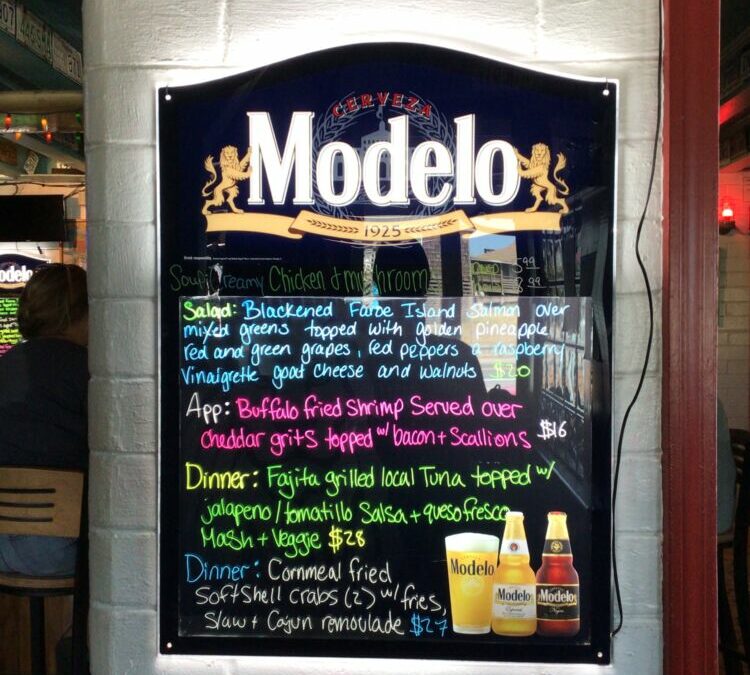 CERVEZA
Modelo
1925
Soup: Creamy Chicken & mushroom 5.99
8.99
Salad: Blackened Faroe Island Salmon over
mixed greens topped with golden pineapple,
red and green grapes, red peppers a raspberry
Vinaigrette goat cheese and walnuts $20
App: Buffalo fried Shrimp Served over
cheddar grits topped w/ bacon + Scallions $16
Dinner: Fajita grilled local Tuna topped w/
jalapeno/tomatillo Salsa + queso fresco
Mash + Veggie $28
Dinner: Cornmeal fried
Soft Shell Crabs (2) w/ fries,
Slaw + Cajun remoulade $27
Modelo
Modelo
Especial
Modelo
Negra
Modelo